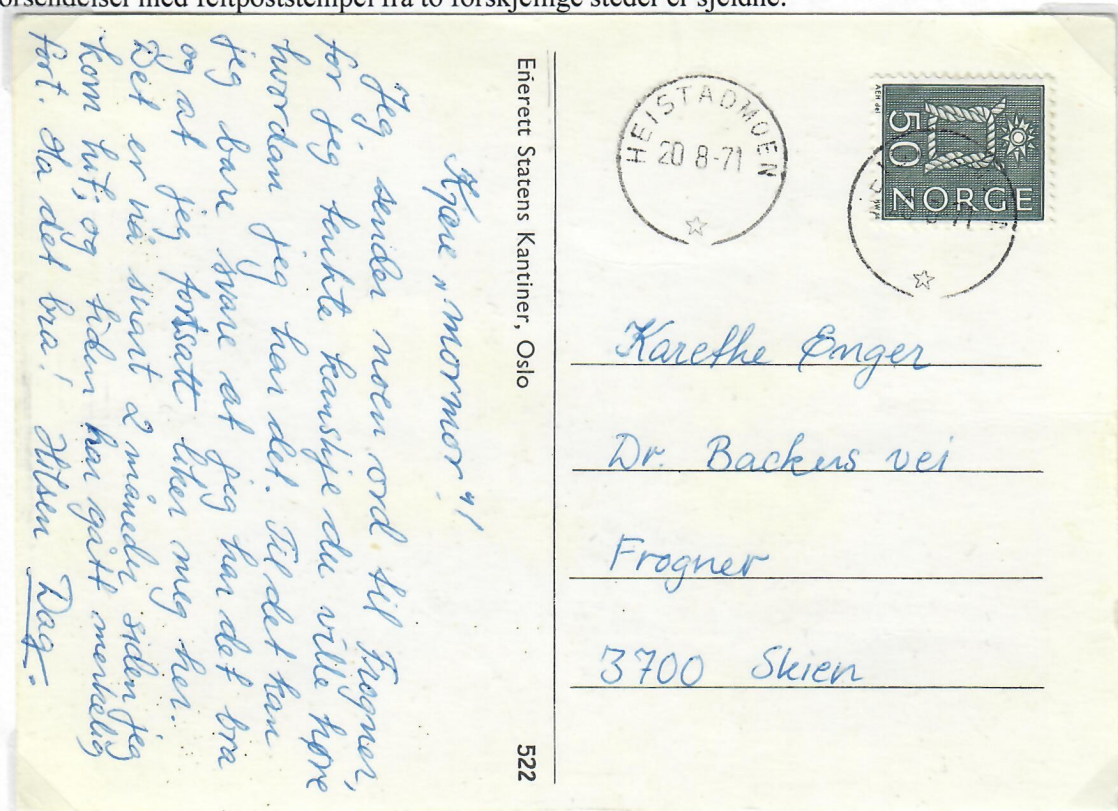 forsendelser med feltpoststempel fra to forskjellige steder er sjeldne.
Kjære "mormor"!
Jeg sender noen ord til Frogner,
for jeg tenkte kanskje du ville høre
hvordan jeg har det. Til det kan
jeg bare svare at jeg har det bra
og at jeg fortsatt liker meg her.
Det er nå snart 2 måneder siden jeg
kom hit, og tiden har gått merkelig
fort. Ha det bra! Hilsen Dag.
Enerett Statens Kantiner, Oslo
522
HEISTADMOEN
20 8-71
AEH del
50
NORGE
Karethe Enger
Dr. Backers vei
Frogner
3700 Skien